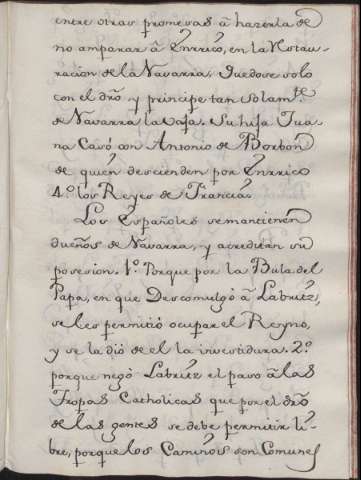 entre otras promesas â hazerla de
no amparar â Enrrico, en la Restau-
racion de la Navarra. Quedose solo
con el dro y principe tan solam.te
de Navarra la vaja. Su hija Jua-
na Casó con Antonio de Borbón
de quien descienden por Enrrico
4.º los Reyes de Francia.
Los Españoles se mantienen
dueños de Navarra, y acreditan su
posesion. 1.º Porque por la Bula del
Papa, en que Descomulgó â Labrit,
se les permitió ocupar el Reyno,
y se la dió de el la investidura. 2.º
porque negó Labrit el paso â las
Tropas Catholicas que por el dro
de las gentes se debe permitir li-
bre, porque los Caminos son Comunes